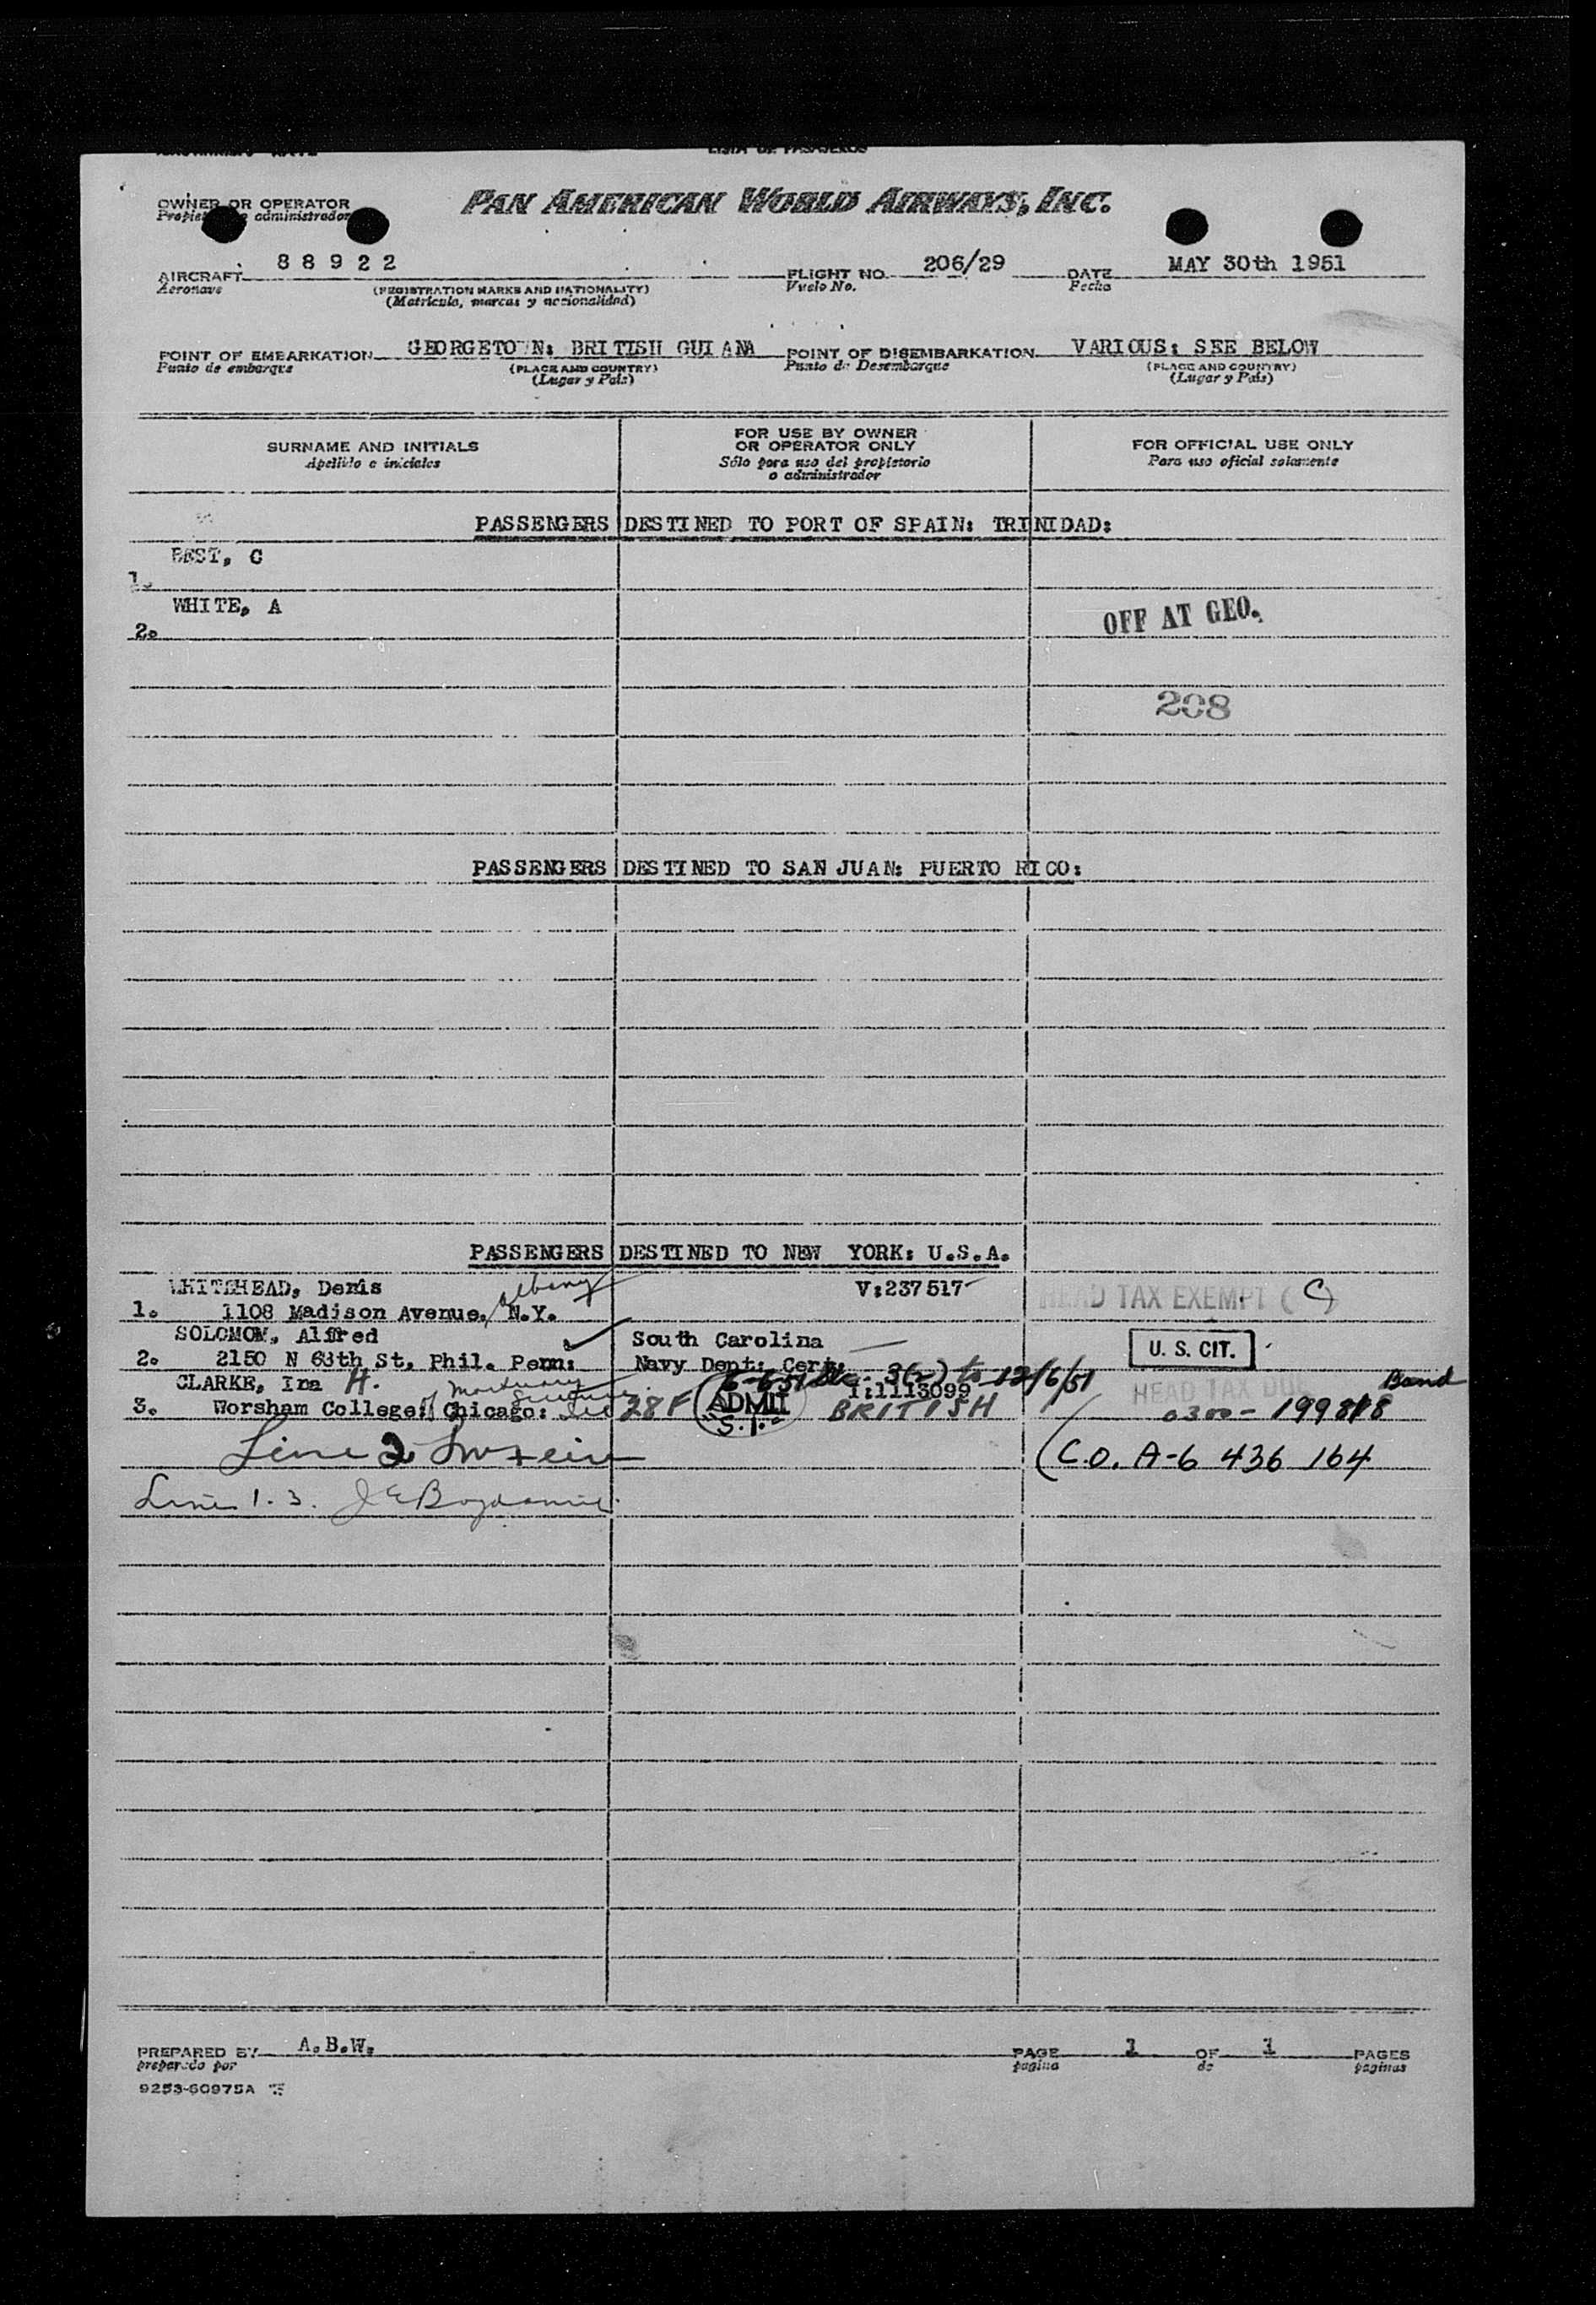 LISTA DE PASAJEROS
OWNER OR OPERATOR
PAN AMERICAN WORLD AIRWAYS, INC.
Propietario o administrador
AIRCRAFT 88922 FLIGHT NO. 206/29 DATE MAY 30th 1951
Aeronave (REGISTRATION MARKS AND NATIONALITY) Vuelo No. Fecha
(Matrícula, marcas y nacionalidad)
POINT OF EMBARKATION GEORGETOWN: BRITISH GUIANA POINT OF DISEMBARKATION VARIOUS: SEE BELOW
Punto de embarque (PLACE AND COUNTRY) Punto de Desembarque (PLACE AND COUNTRY)
(Lugar y País) (Lugar y País)
SURNAME AND INITIALS
Apellido e iniciales
FOR USE BY OWNER
OR OPERATOR ONLY
Sólo para uso del propietario
o administrador
FOR OFFICIAL USE ONLY
Para uso oficial solamente
PASSENGERS DESTINED TO PORT OF SPAIN: TRINIDAD:
BEST, C
1.
WHITE, A
2.
OFF AT GEO.
208
PASSENGERS DESTINED TO SAN JUAN: PUERTO RICO:
PASSENGERS DESTINED TO NEW YORK: U.S.A.
WHITEHEAD, Denis Albany V:237517
1. 1108 Madison Avenue, N.Y. HEAD TAX EXEMPT ( )
SOLOMON, Alfred South Carolina U. S. CIT.
2. 2150 N 63th St, Phil. Penn: Navy Dept: Cert:
CLARKE, Ina H. 6-6-51 3(2) to 12/6/51 Bond
of Mortuary Science I:1113099 HEAD TAX DUE
3. Worsham College: Chicago: 28 F ADMIT BRITISH 0300-
S.I.
Line 2 (C.O. A-6 436 164
Line 1.3.
PREPARED BY A.B.W. PAGE 1 OF 1 PAGES
preparado por página de páginas
9253-60975A